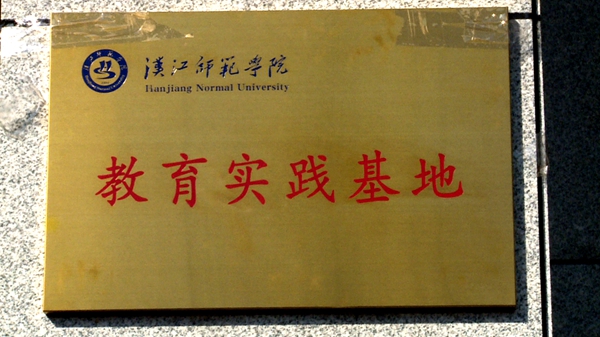 漢江师範学院
Hanjiang Normal University
教育实践基地